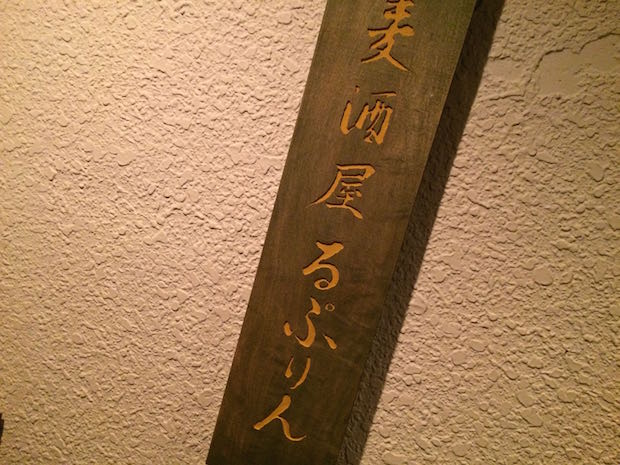 麦酒屋るぷりん